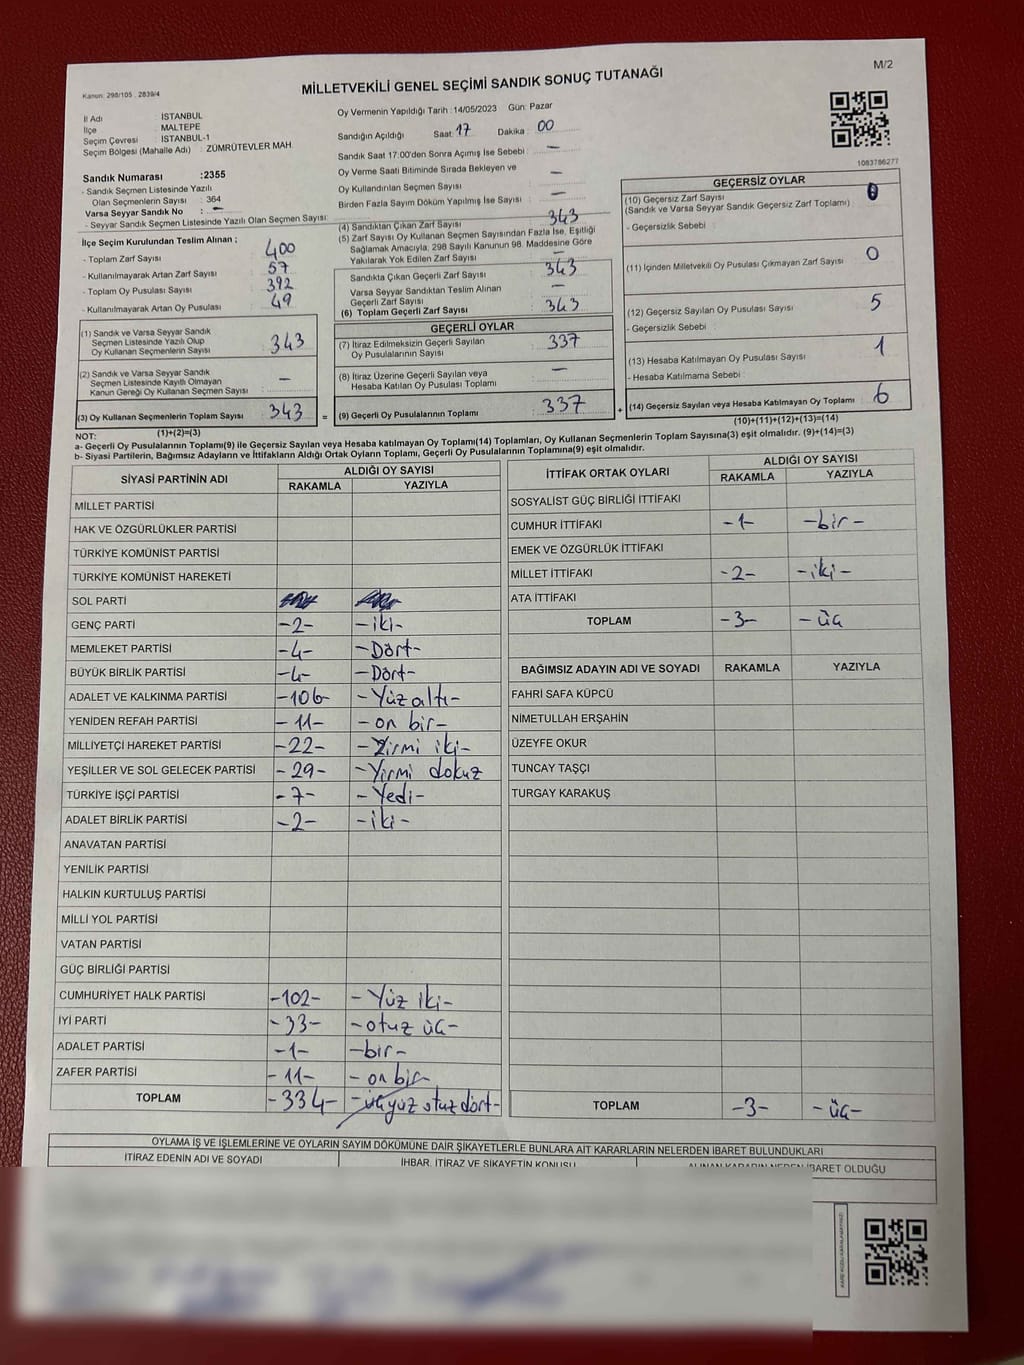 M/2
Kanun: 298/105 . 2839/4
MİLLETVEKİLİ GENEL SEÇİMİ SANDIK SONUÇ TUTANAĞI
İl Adı : İSTANBUL
İlçe : MALTEPE
Seçim Çevresi : İSTANBUL-1
Seçim Bölgesi (Mahalle Adı) : ZÜMRÜTEVLER MAH.
Oy Vermenin Yapıldığı Tarih : 14/05/2023 Gün: Pazar
Sandığın Açıldığı Saat: 17 Dakika : 00
Sandık Saat 17:00'den Sonra Açımış İse Sebebi : —
Oy Verme Saati Bitiminde Sırada Bekleyen ve
Oy Kullandırılan Seçmen Sayısı —
Birden Fazla Sayım Döküm Yapılmış İse Sayısı —
1083786277
Sandık Numarası :2355
- Sandık Seçmen Listesinde Yazılı
Olan Seçmenlerin Sayısı : 364
Varsa Seyyar Sandık No : —
- Seyyar Sandık Seçmen Listesinde Yazılı Olan Seçmen Sayısı:
İlçe Seçim Kurulundan Teslim Alınan ;
- Toplam Zarf Sayısı : 400
- Kullanılmayarak Artan Zarf Sayısı : 57
- Toplam Oy Pusulası Sayısı : 392
- Kullanılmayarak Artan Oy Pusulası : 49
(1) Sandık ve Varsa Seyyar Sandık
Seçmen Listesinde Yazılı Olup
Oy Kullanan Seçmenlerin Sayısı : 343
(2) Sandık ve Varsa Seyyar Sandık
Seçmen Listesinde Kayıtlı Olmayan
Kanun Gereği Oy Kullanan Seçmen Sayısı : —
(3) Oy Kullanan Seçmenlerin Toplam Sayısı : 343 =
(1)+(2)=(3)
(4) Sandıktan Çıkan Zarf Sayısı 343
(5) Zarf Sayısı Oy Kullanan Seçmen Sayısından Fazla İse, Eşitliği
Sağlamak Amacıyla, 298 Sayılı Kanunun 98. Maddesine Göre
Yakılarak Yok Edilen Zarf Sayısı —
Sandıkta Çıkan Geçerli Zarf Sayısı : 343
Varsa Seyyar Sandıktan Teslim Alınan
Geçerli Zarf Sayısı : —
(6) Toplam Geçerli Zarf Sayısı : 343
GEÇERLİ OYLAR
(7) İtiraz Edilmeksizin Geçerli Sayılan
Oy Pusulasının Sayısı : 337
(8) İtiraz Üzerine Geçerli Sayılan veya
Hesaba Katılan Oy Pusulası Toplamı : —
(9) Geçerli Oy Pusulalarının Toplamı : 337 +
GEÇERSİZ OYLAR
(10) Geçersiz Zarf Sayısı
(Sandık ve Varsa Seyyar Sandık Geçersiz Zarf Toplamı) : 0
- Geçersizlik Sebebi :
(11) İçinden Milletvekili Oy Pusulası Çıkmayan Zarf Sayısı : 0
(12) Geçersiz Sayılan Oy Pusulası Sayısı : 5
- Geçersizlik Sebebi :
(13) Hesaba Katılmayan Oy Pusulası Sayısı : 1
- Hesaba Katılmama Sebebi :
(14) Geçersiz Sayılan veya Hesaba Katılmayan Oy Toplamı : 6
(10)+(11)+(12)+(13)=(14)
NOT:
a- Geçerli Oy Pusulalarının Toplamı(9) ile Geçersiz Sayılan veya Hesaba katılmayan Oy Toplamı(14) Toplamları, Oy Kullanan Seçmenlerin Toplam Sayısına(3) eşit olmalıdır. (9)+(14)=(3)
b- Siyasi Partilerin, Bağımsız Adayların ve İttifakların Aldığı Ortak Oyların Toplamı, Geçerli Oy Pusulalarının Toplamına(9) eşit olmalıdır.
SİYASİ PARTİNİN ADI ALDIĞI OY SAYISI
RAKAMLA YAZIYLA
MİLLET PARTİSİ
HAK VE ÖZGÜRLÜKLER PARTİSİ
TÜRKİYE KOMÜNİST PARTİSİ
TÜRKİYE KOMÜNİST HAREKETİ
SOL PARTİ
GENÇ PARTİ -2- -iki-
MEMLEKET PARTİSİ -4- -Dört-
BÜYÜK BİRLİK PARTİSİ -4- -Dört-
ADALET VE KALKINMA PARTİSİ -106- -Yüz altı-
YENİDEN REFAH PARTİSİ -11- -on bir-
MİLLİYETÇİ HAREKET PARTİSİ -22- -Yirmi iki-
YEŞİLLER VE SOL GELECEK PARTİSİ -29- -Yirmi dokuz
TÜRKİYE İŞÇİ PARTİSİ -7- -Yedi-
ADALET BİRLİK PARTİSİ -2- -iki-
ANAVATAN PARTİSİ
YENİLİK PARTİSİ
HALKIN KURTULUŞ PARTİSİ
MİLLİ YOL PARTİSİ
VATAN PARTİSİ
GÜÇ BİRLİĞİ PARTİSİ
CUMHURİYET HALK PARTİSİ -102- -Yüz iki-
İYİ PARTİ -33- -otuz üç-
ADALET PARTİSİ -1- -bir-
ZAFER PARTİSİ -11- -on bir-
TOPLAM -334- -üçyüz otuz dört-
İTTİFAK ORTAK OYLARI ALDIĞI OY SAYISI
RAKAMLA YAZIYLA
SOSYALİST GÜÇ BİRLİĞİ İTTİFAKI
CUMHUR İTTİFAKI -1- -bir-
EMEK VE ÖZGÜRLÜK İTTİFAKI
MİLLET İTTİFAKI -2- -iki-
ATA İTTİFAKI
TOPLAM -3- -üç
BAĞIMSIZ ADAYIN ADI VE SOYADI RAKAMLA YAZIYLA
FAHRİ SAFA KÜPCÜ
NİMETULLAH ERŞAHİN
ÜZEYFE OKUR
TUNCAY TAŞÇI
TURGAY KARAKUŞ
TOPLAM -3- -üç-
OYLAMA İŞ VE İŞLEMLERİNE VE OYLARIN SAYIM DÖKÜMÜNE DAİR ŞİKAYETLERLE BUNLARA AİT KARARLARIN NELERDEN İBARET BULUNDUKLARI
İTİRAZ EDENİN ADI VE SOYADI İHBAR, İTİRAZ VE ŞİKAYETİN KONUSU ALINAN KARARIN NEDEN İBARET OLDUĞU